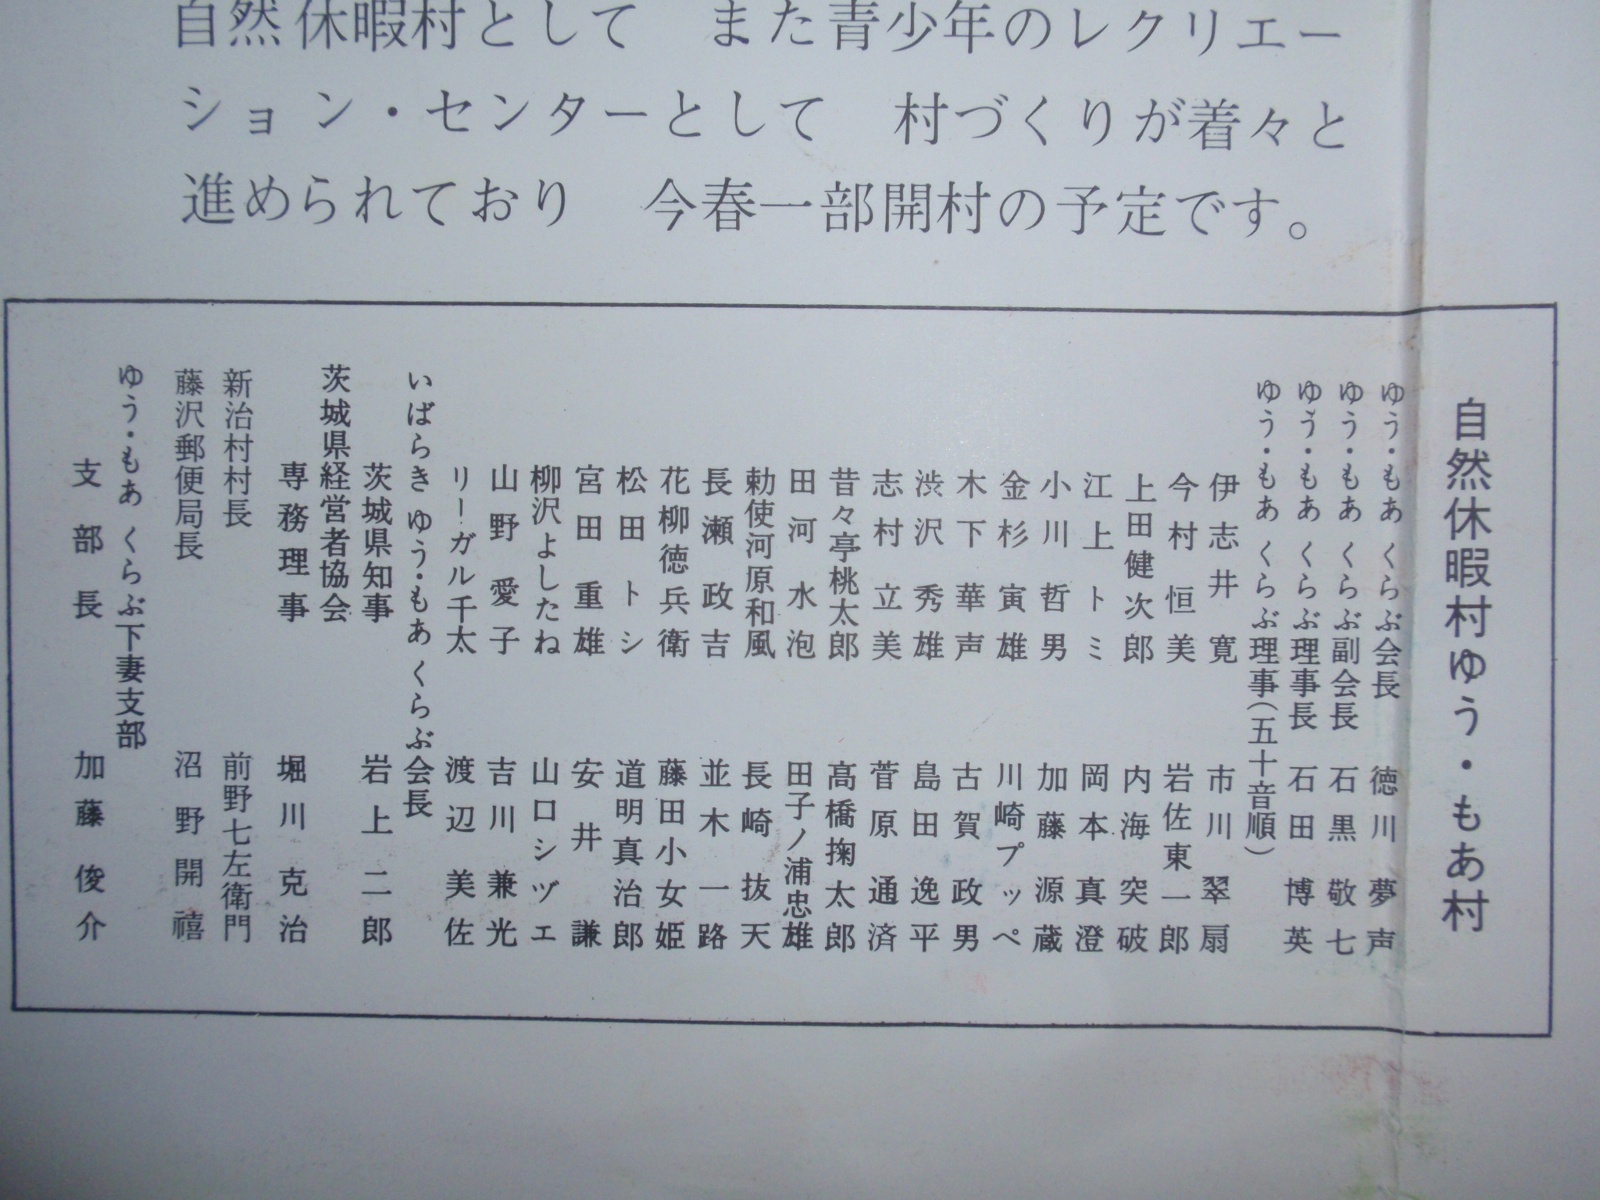 自然休暇村として　また青少年のレクリエー
ション・センターとして　村づくりが着々と
進められており　今春一部開村の予定です。
自然休暇村ゆう・もあ村
ゆう・もあ くらぶ会長　徳川夢声
ゆう・もあ くらぶ副会長　石黒敬七
ゆう・もあ くらぶ理事長　石田博英
ゆう・もあ くらぶ理事（五十音順）
伊志井寛　市川翠扇
今村恒美　岩佐東一郎
上田健次郎　内海突破
江上トミ　岡本真澄
小川哲男　加藤源蔵
金杉寅雄　川崎プッペ
木下華声　古賀政男
渋沢秀雄　島田逸平
志村立美　菅原通済
昔々亭桃太郎　高橋掬太郎
田河水泡　田子ノ浦忠雄
勅使河原和風　長崎抜天
長瀬政吉　並木一路
花柳徳兵衛　藤田小女姫
松田トシ　道明真治郎
宮田重雄　安井謙
柳沢よしたね　山口シヅエ
山野愛子　吉川兼光
リーガル千太　渡辺美佐
いばらき ゆう・もあ くらぶ会長
茨城県知事　岩上二郎
茨城県経営者協会
専務理事　堀川克治
新治村村長　前野七左衛門
藤沢郵便局長　沼野開禧
ゆう・もあ くらぶ下妻支部
支部長　加藤俊介